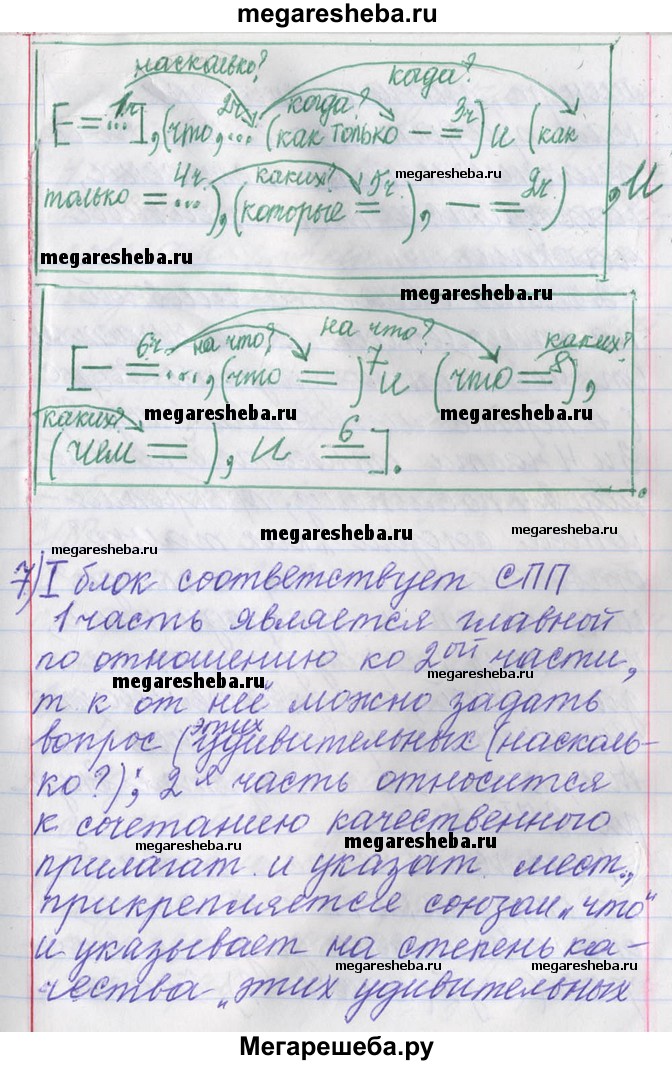 megaresheba.ru
насколько? когда?
1ч. 2ч. когда? 3ч.
[ – = ... ], (что, ... (как только – = ) и (как
4ч. каких? 5ч. 2ч. megaresheba.ru
только = ... ), (которые = ), – = ) , и
megaresheba.ru
megaresheba.ru
6ч. на что? на что? каких?
[ – = ..., (что = ) 7 и (что = 8 ),
каких? megaresheba.ru megaresheba.ru
(чем = ), и = 6 ].
megaresheba.ru megaresheba.ru
megaresheba.ru
7) I блок соответствует СПП
1 часть является главной
по отношению ко 2ой части,
megaresheba.ru megaresheba.ru
т к от неё можно задать
этих
вопрос (удивительных (насколь-
ко?); 2я часть относится
к сочетанию качественного
megaresheba.ru
прилагат. и указат. мест.,
прикрепляется союзом „что"
и указывает на степень ка-
megaresheba.ru megaresheba.ru
чества „этих удивительных
Мегарешеба.ру